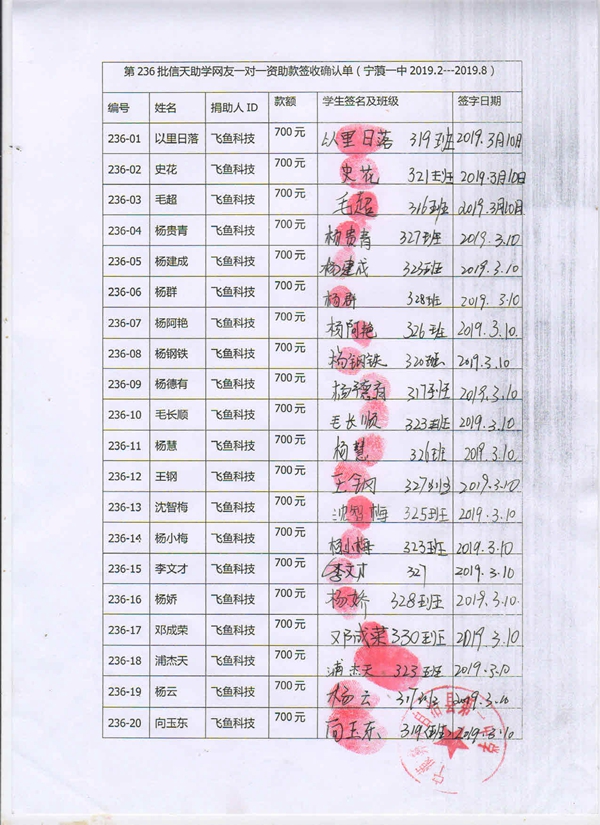 第 236 批信天助学网友一对一资助款签收确认单（宁蒗一中 2019.2---2019.8）
编号 姓名 捐助人 ID 款额 学生签名及班级 签字日期
236-01 以里日落 飞鱼科技 700 元 以里日落 319班 2019.3月10日
236-02 史花 飞鱼科技 700 元 史花 321班 2019.3月10日
236-03 毛超 飞鱼科技 700 元 毛超 316班 2019.3月10日
236-04 杨贵青 飞鱼科技 700 元 杨贵青 327班 2019.3.10
236-05 杨建成 飞鱼科技 700 元 杨建成 323班 2019.3.10
236-06 杨群 飞鱼科技 700 元 杨群 328班 2019.3.10
236-07 杨阿艳 飞鱼科技 700 元 杨阿艳 326班 2019.3.10.
236-08 杨钢铁 飞鱼科技 700 元 杨钢铁 320班 2019.3.10
236-09 杨德有 飞鱼科技 700 元 杨德有 317班 2019.3.10
236-10 毛长顺 飞鱼科技 700 元 毛长顺 323班 2019.3.10
236-11 杨慧 飞鱼科技 700 元 杨慧 326班 2019.3.10
236-12 王钢 飞鱼科技 700 元 王钢 327班 2019.3.10
236-13 沈智梅 飞鱼科技 700 元 沈智梅 325班 2019.3.10
236-14 杨小梅 飞鱼科技 700 元 杨小梅 323班 2019.3.10
236-15 李文才 飞鱼科技 700 元 李文才 327 2019.3.10
236-16 杨娇 飞鱼科技 700 元 杨娇 328班 2019.3.10.
236-17 邓成荣 飞鱼科技 700 元 邓成荣 330班 2019.3.10
236-18 浦杰天 飞鱼科技 700 元 浦杰天 323班 2019.3.10
236-19 杨云 飞鱼科技 700 元 杨云 317班 2019.3.10
236-20 向玉东 飞鱼科技 700 元 向玉东 319班 2019.3.10